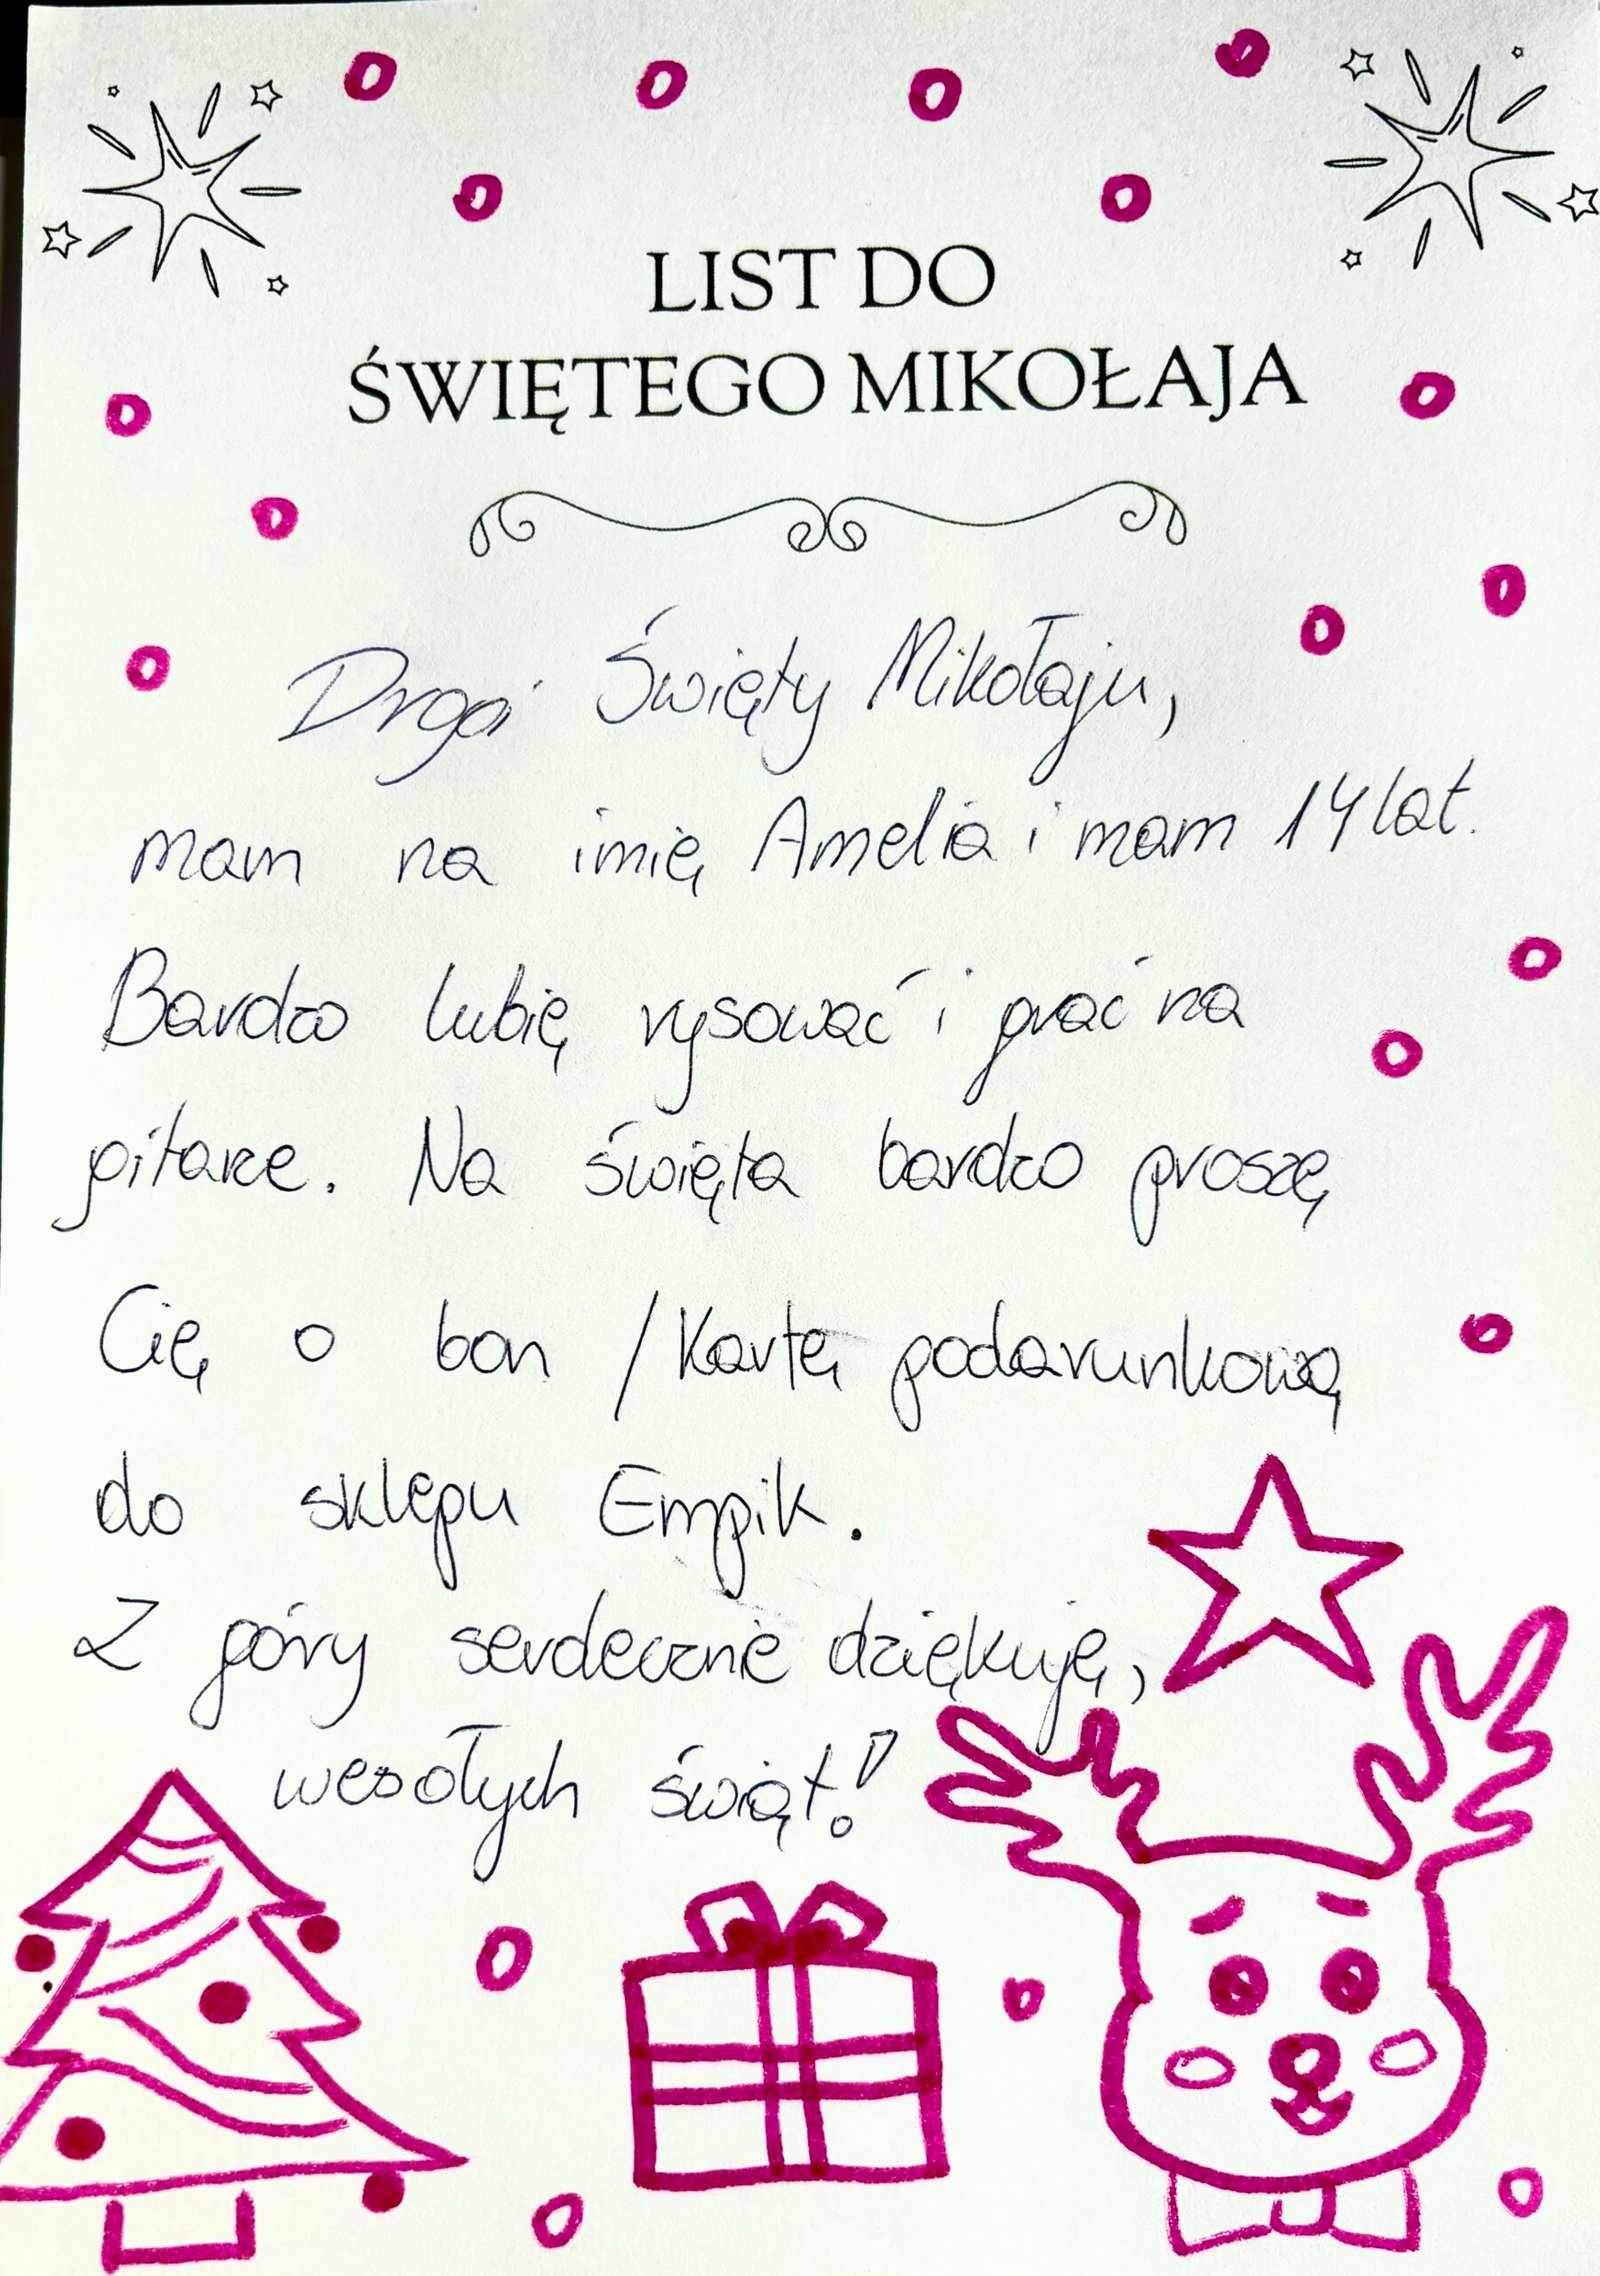 LIST DO
ŚWIĘTEGO MIKOŁAJA
Drogi Święty Mikołaju,
mam na imię Amelia i mam 14 lat.
Bardzo lubię rysować i grać na
gitarze. Na święta bardzo proszę
Cię o bon / kartę podarunkową
do sklepu Empik.
Z góry serdecznie dziękuję,
wesołych świąt!